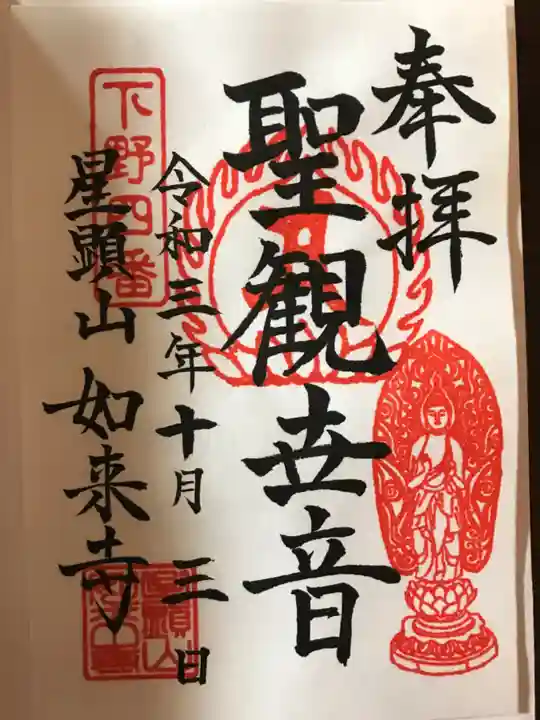 奉拝
聖観世音
令和三年十月三日
下野四番
星顕山如来寺